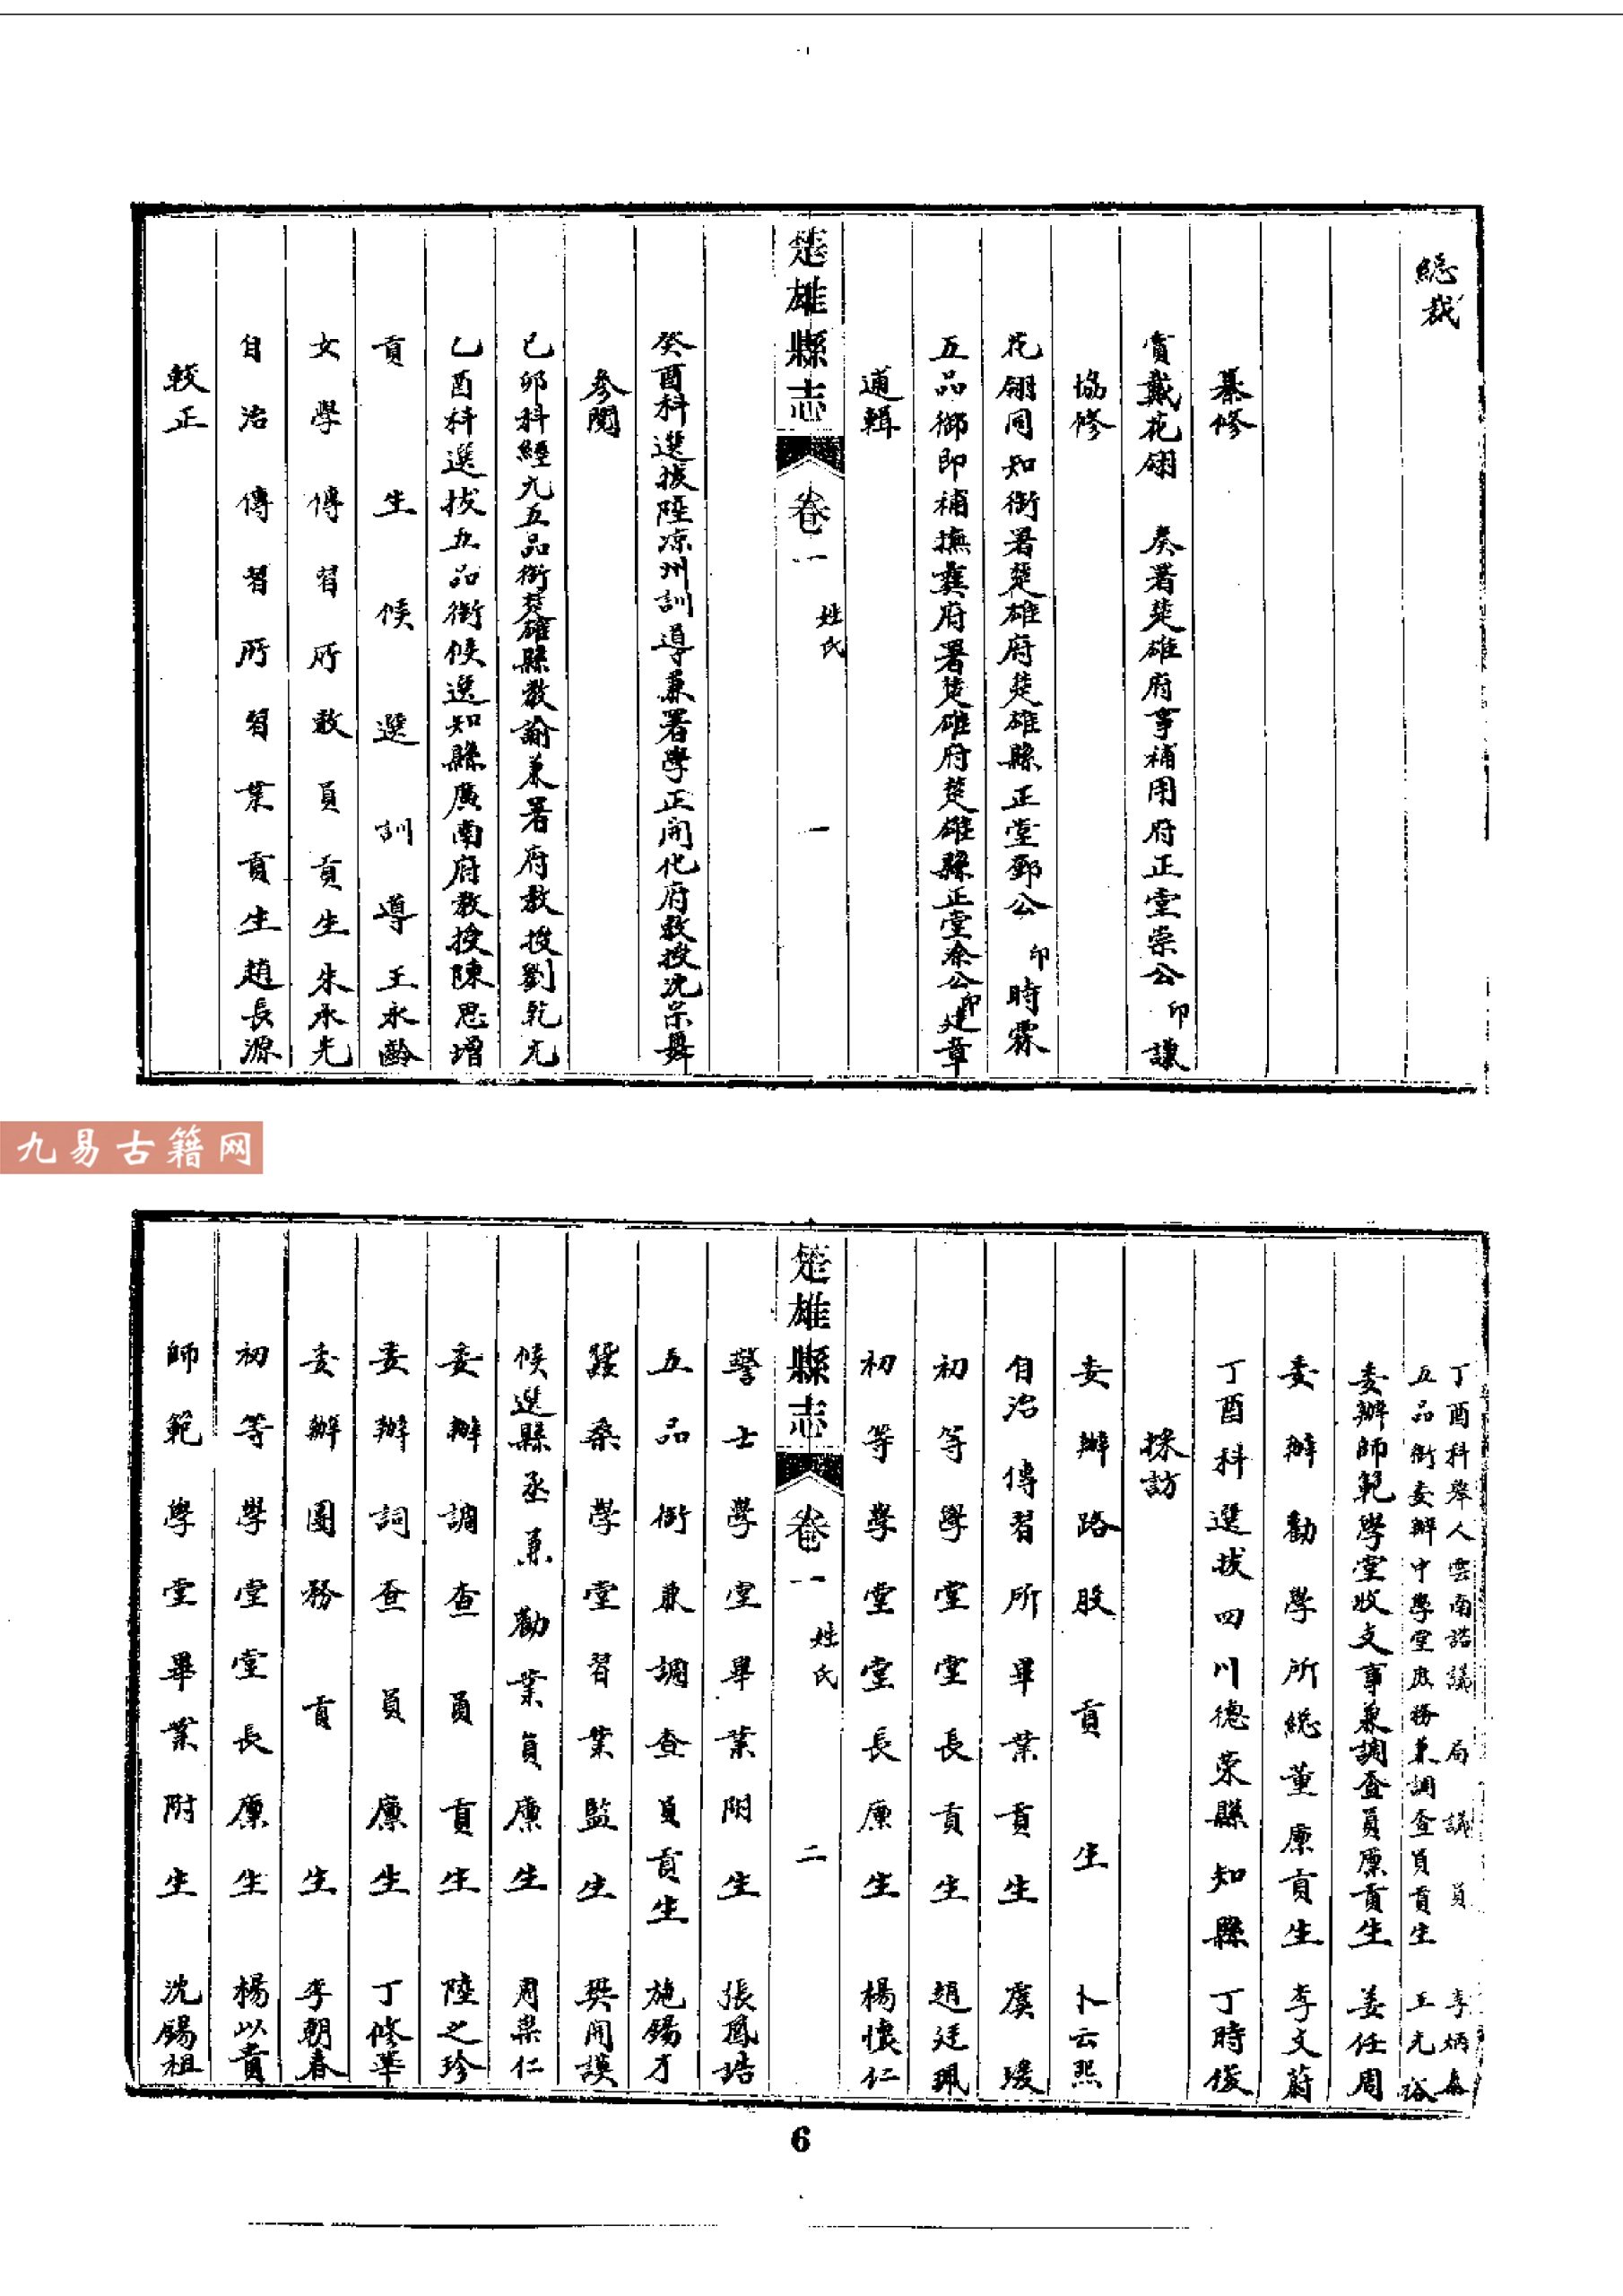 總裁
纂修
賞戴花翎　奏署楚雄府事補用府正堂崇公印謙
協修
花翎同知銜署楚雄府楚雄縣正堂鄧公印時霖
五品銜即補撫彝府署楚雄府楚雄縣正堂涂公印建章
逋輯
楚雄縣志 卷一 姓氏 一
癸酉科選拔陸涼州訓導兼署學正開化府教授沈宗舜
參閱
己卯科經元五品銜楚雄縣教諭兼署府教授劉乾元
乙酉科選拔五品銜候選知縣廣南府教授陳思增
貢生候選訓導王永齡
女學傳習所教員貢生朱承先
自治傳習所習業貢生趙長源
較正
九易古籍网
丁酉科舉人雲南諮議局議員 李炳泰
五品銜委辦中學堂庶務兼調查員貢生 王光裕
委辦師範學堂收支事兼調查員廩貢生 姜任周
委辦勸學所總董廩貢生 李文蔚
丁酉科選拔四川德榮縣知縣 丁時俊
採訪
委辦路股貢生 卜云熙
自治傳習所畢業貢生 虞瑗
初等學堂堂長貢生 趙廷珮
初等學堂堂長廩生 楊懷仁
楚雄縣志 卷一 姓氏 二
警士學堂畢業附生 張鳳誥
五品銜兼調查員貢生 施錫才
蠶桑學堂習業監生 樊開謨
候選縣丞兼勸業員廩生 周榮仁
委辦調查員貢生 陸之珍
委辦詞查員廩生 丁修華
委辦團務貢生 李朝春
初等學堂堂長廩生 楊以貴
師範學堂畢業附生 沈錫祖
6